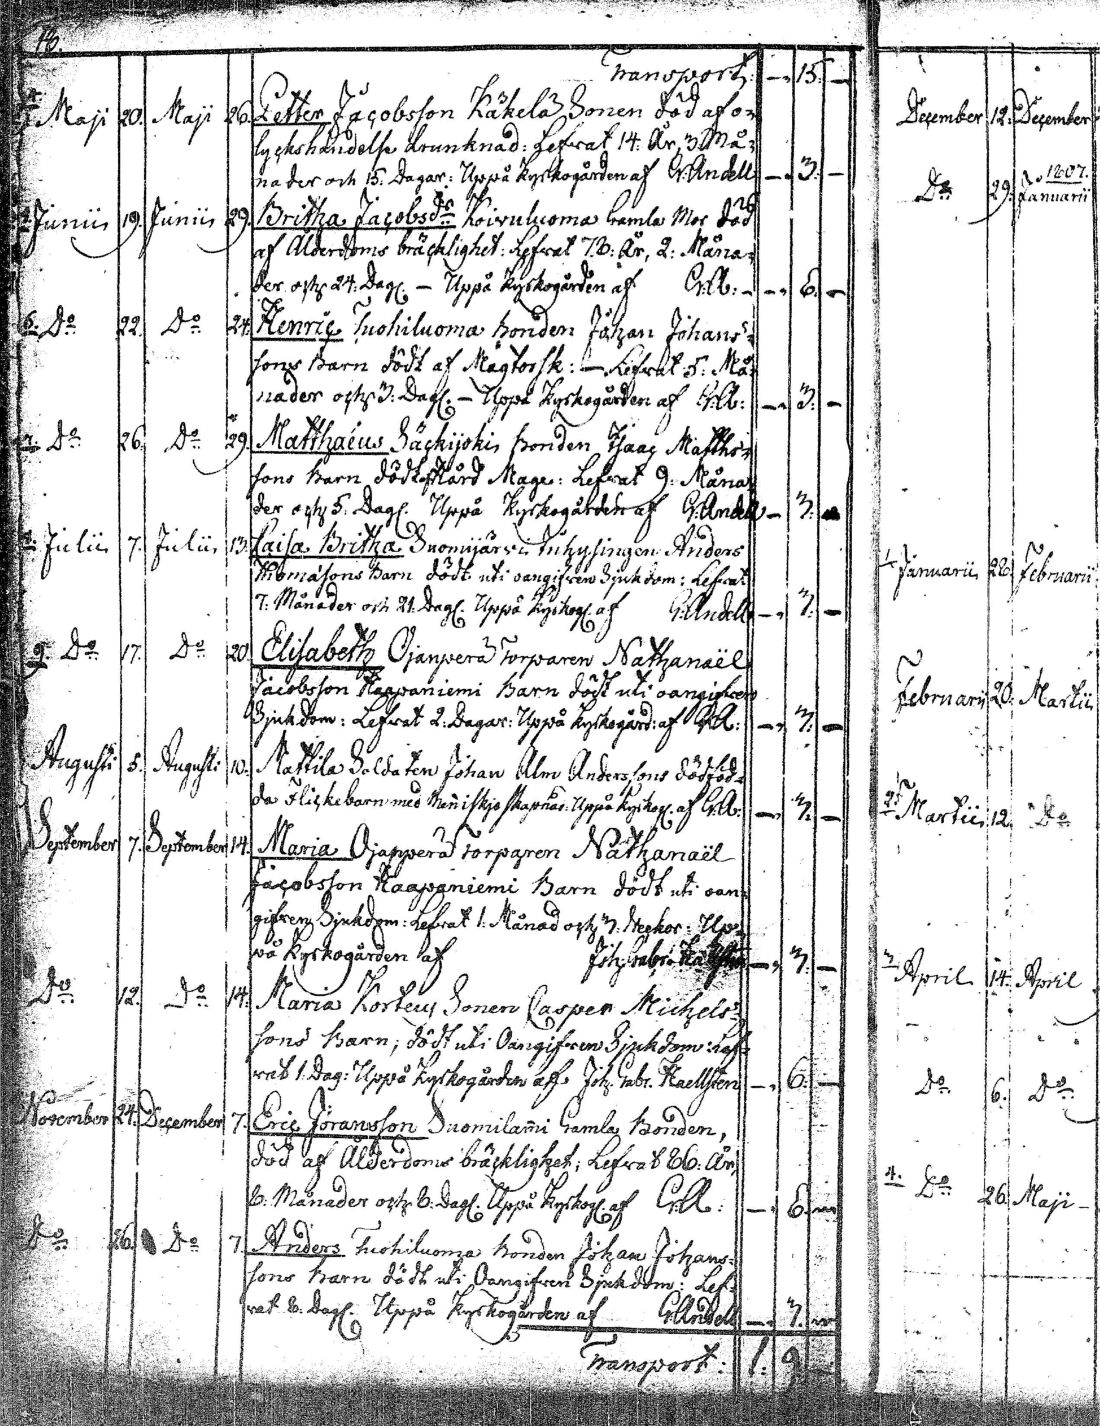 Transport: — 15. —
Maji 20. Maji 26. Petter Jacobsson Käkelä Sonen död af o=
lyckshändelse drunknad: Lefvat 14: År, 3 Må=
nader och 15. Dagar: Uppå Kyrkogården af G: Andell — 3. —
Junii 19. Junii 29. Britha Jacobsdr Koivuluoma Gamla Mor död
af Ålderdoms bräcklighet: Lefvat 78: År, 2: Måna=
der och 24: Dag. — Uppå Kyrkogården af G:A: — 6. —
6. Do 22. Do 24. Henric Tuohiluoma Bonden Johan Johans=
sons Barn dödt af Mågtorsk: — Lefvat 5: Må=
nader och 3: Dag. — Uppå Kyrkogården af G:A: — 3. —
7. Do 26. Do 29. Matthaeus Säckijoki Bonden Isaac Matths=
sons Barn dödt af Hård Mage: Lefvat 9: Måna=
der och 5. Dag. Uppå Kyrkogården af G: Andell — 3. —
Julii 7. Julii 13. Caisa Britha Suomijärvi Inhysingen Anders
Thomasons Barn dödt uti oangifven Sjukdom: Lefvat
7: Månader och 21. Dag. Uppå Kyrkog. af G: Andell — 3. —
9. Do 17. Do 20. Elisabeth Ojanperä Torparen Nathanaël
Jacobsson Haapaniemi Barn dödt uti oangifven
Sjukdom: Lefvat 2: Dagar: Uppå Kyrkogård: af G:A: — 3. —
Augusti 5. Augusti 10. Mattila Soldaten Johan Alm Anderssons dödföd=
da Flickebarn med Menniskjoskapnad: Uppå Kyrkog. af G:A: — 3. —
September 7. September 14. Maria Ojanperä Torparen Nathanaël
Jacobsson Haapaniemi Barn dödt uti oan=
gifven Sjukdom: Lefvat 1. Månad och 3. Veckor: Up=
på Kyrkogården af Joh: Gabr: — 3. —
Do 12. Do 14. Maria Kortesi Sonen Casper Michels=
sons Barn, dödt uti Oangifven Sjukdom: Lef=
vat 1. Dag: Uppå Kyrkogården af Joh: Gabr. Kaellsten — 6. —
November 24. December 7. Eric Jöransson Suomilammi Gamla Bonden,
död af Ålderdoms bräcklighet; Lefvat 86: År,
8. Månader och 8. Dag. Uppå Kyrkog. af G:A: — 6. —
Do 26. Do 7. Anders Tuohiluoma Bonden Johan Johans=
sons Barn dödt uti Oangifven Sjukdom: Lef=
vat 8. Dag. Uppå Kyrkogården af G: Andell — 3. —
Transport: 1: 9. —
December 12. December
Do 29. 1807. Januarii
1. Januarii 28. Februarii
Februarii 20. Martii
2. Martii 12. Do
3. April 14. April
Do 6. Do
4. Do 26. Maji